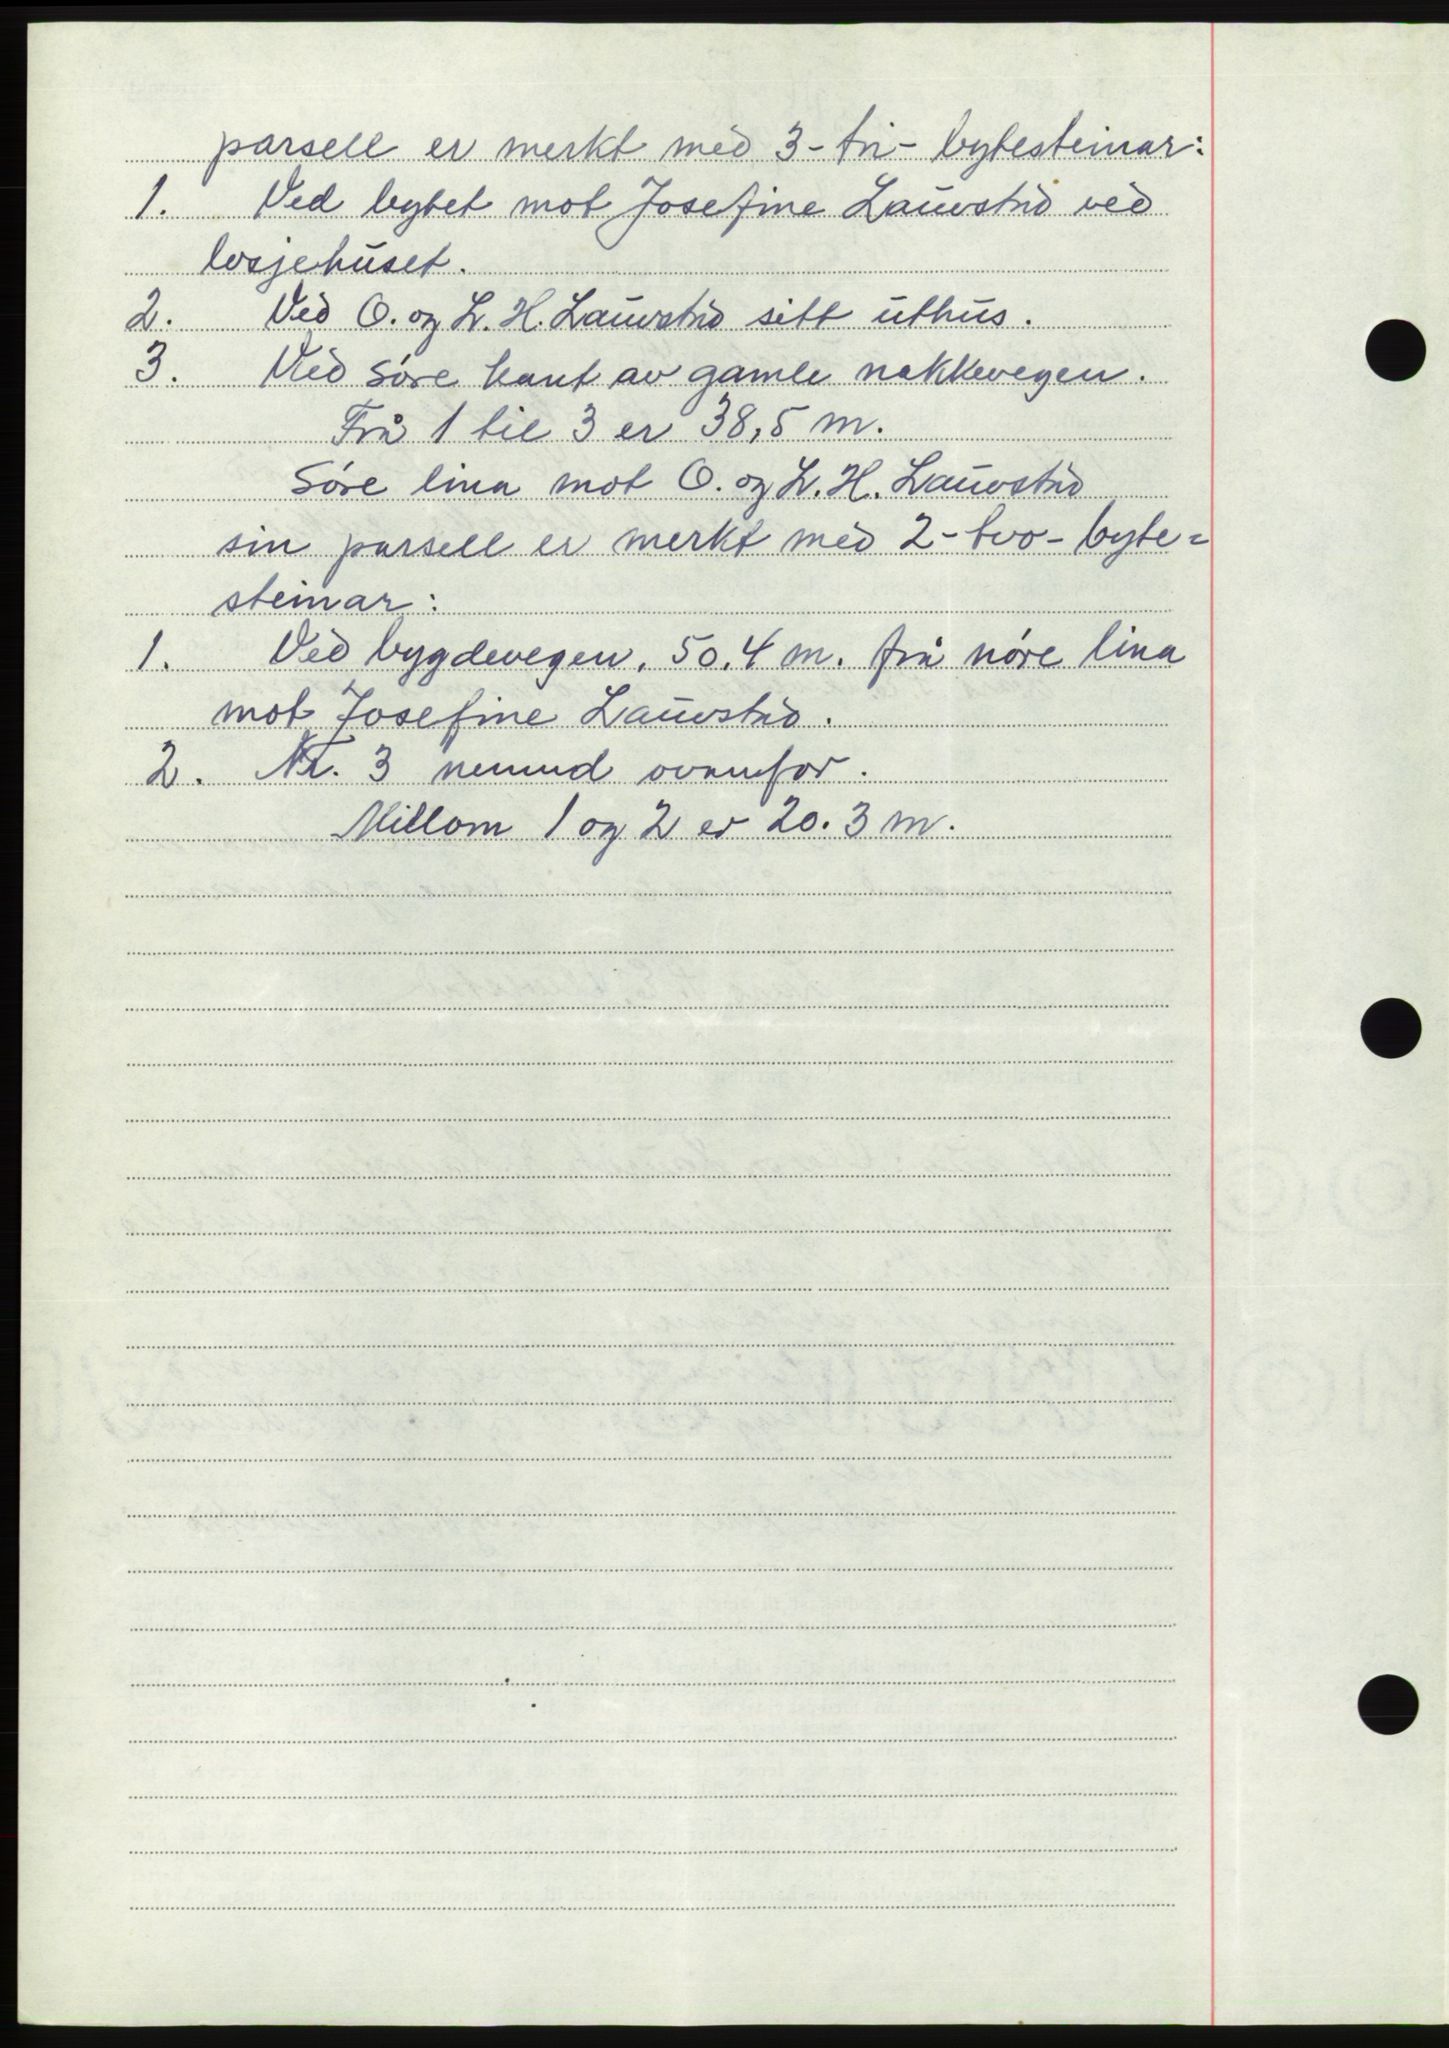 parsell er merkt med 3-tri-bytesteinar:
1. Ved bytet mot Josefine Lauvstad ved
losjehuset.
2. Ved O. og L. H. Lauvstad sitt uthus.
3. Ved søre kant av gamle nakkevegen.
Frå 1 til 3 er 38,5 m.
Søre lina mot O. og L. H. Lauvstad
sin parsell er merkt med 2-tvo-byte=
steinar:
1. Ved bygdevegen, 50.4 m. frå nøre lina
mot Josefine Lauvstad.
2. Nr. 3 nemnd ovanfor.
Millom 1 og 2 er 20.3 m.